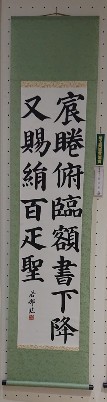 宸睠俯臨額書下降
又賜絹百疋聖